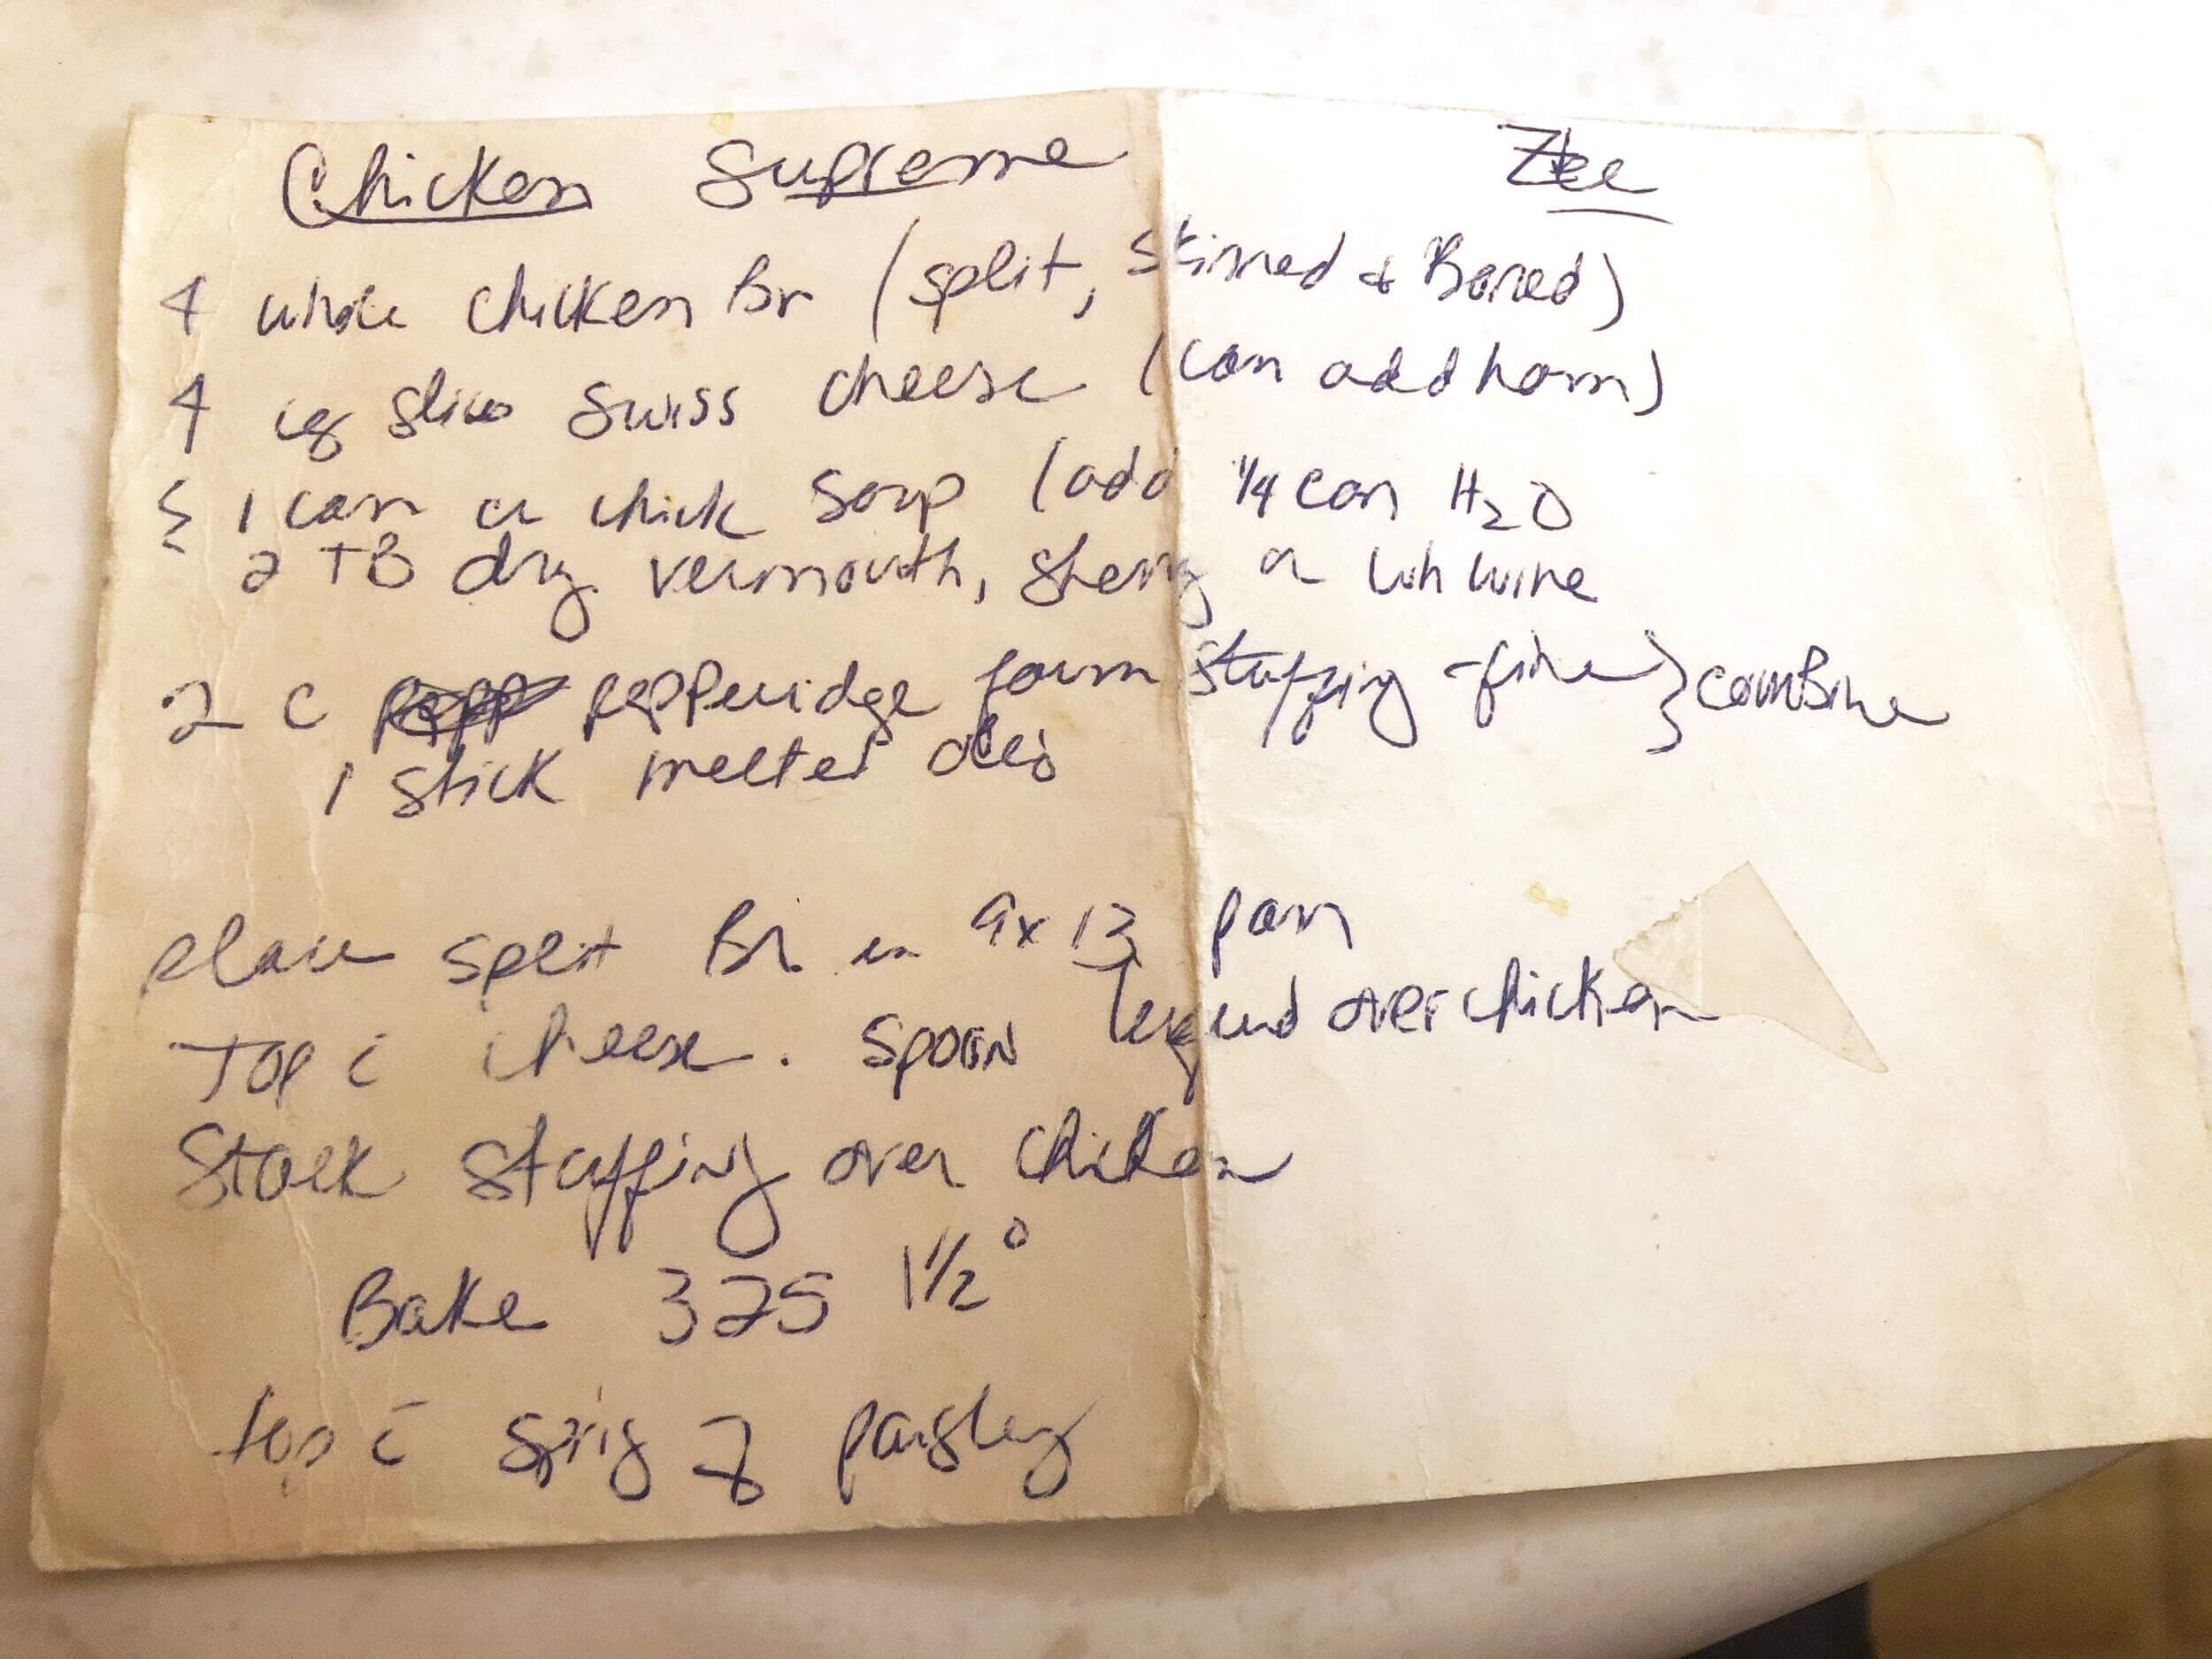 Chicken Supreme Zee
4 whole chicken Br (split, skinned & Boned)
4 lg slices Swiss cheese (can add ham)
1 can cr chick soup (add 1/4 can H2O
2 TB dry vermouth, sherry or wh wine
2 c pepperidge farm stuffing - fine } comBine
1 stick melted oleo
place split Br in 9x13 pan
Top c̄ cheese. spoon liquid over chicken
Stack stuffing over chicken
Bake 325 1 1/2°
top c̄ sprig of parsley